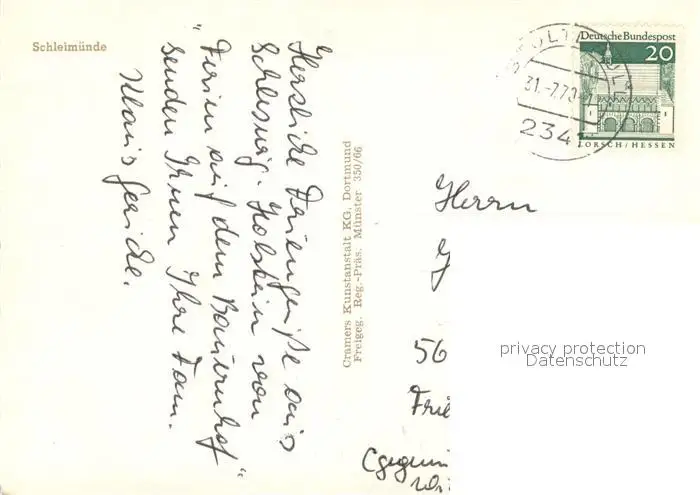 Schleimünde
Herzliche Feriengrüße aus
Schleswig-Holstein von
"Ferien auf dem Bauernhof"
senden Ihnen Ihre Fam.
Klaus
Cramers Kunstanstalt KG, Dortmund
Freigeg. Reg.-Präs. Münster 350/66
Deutsche Bundespost
20
LORSCH/HESSEN
31.-7.70
234
Herrn
56
privacy protection
Datenschutz